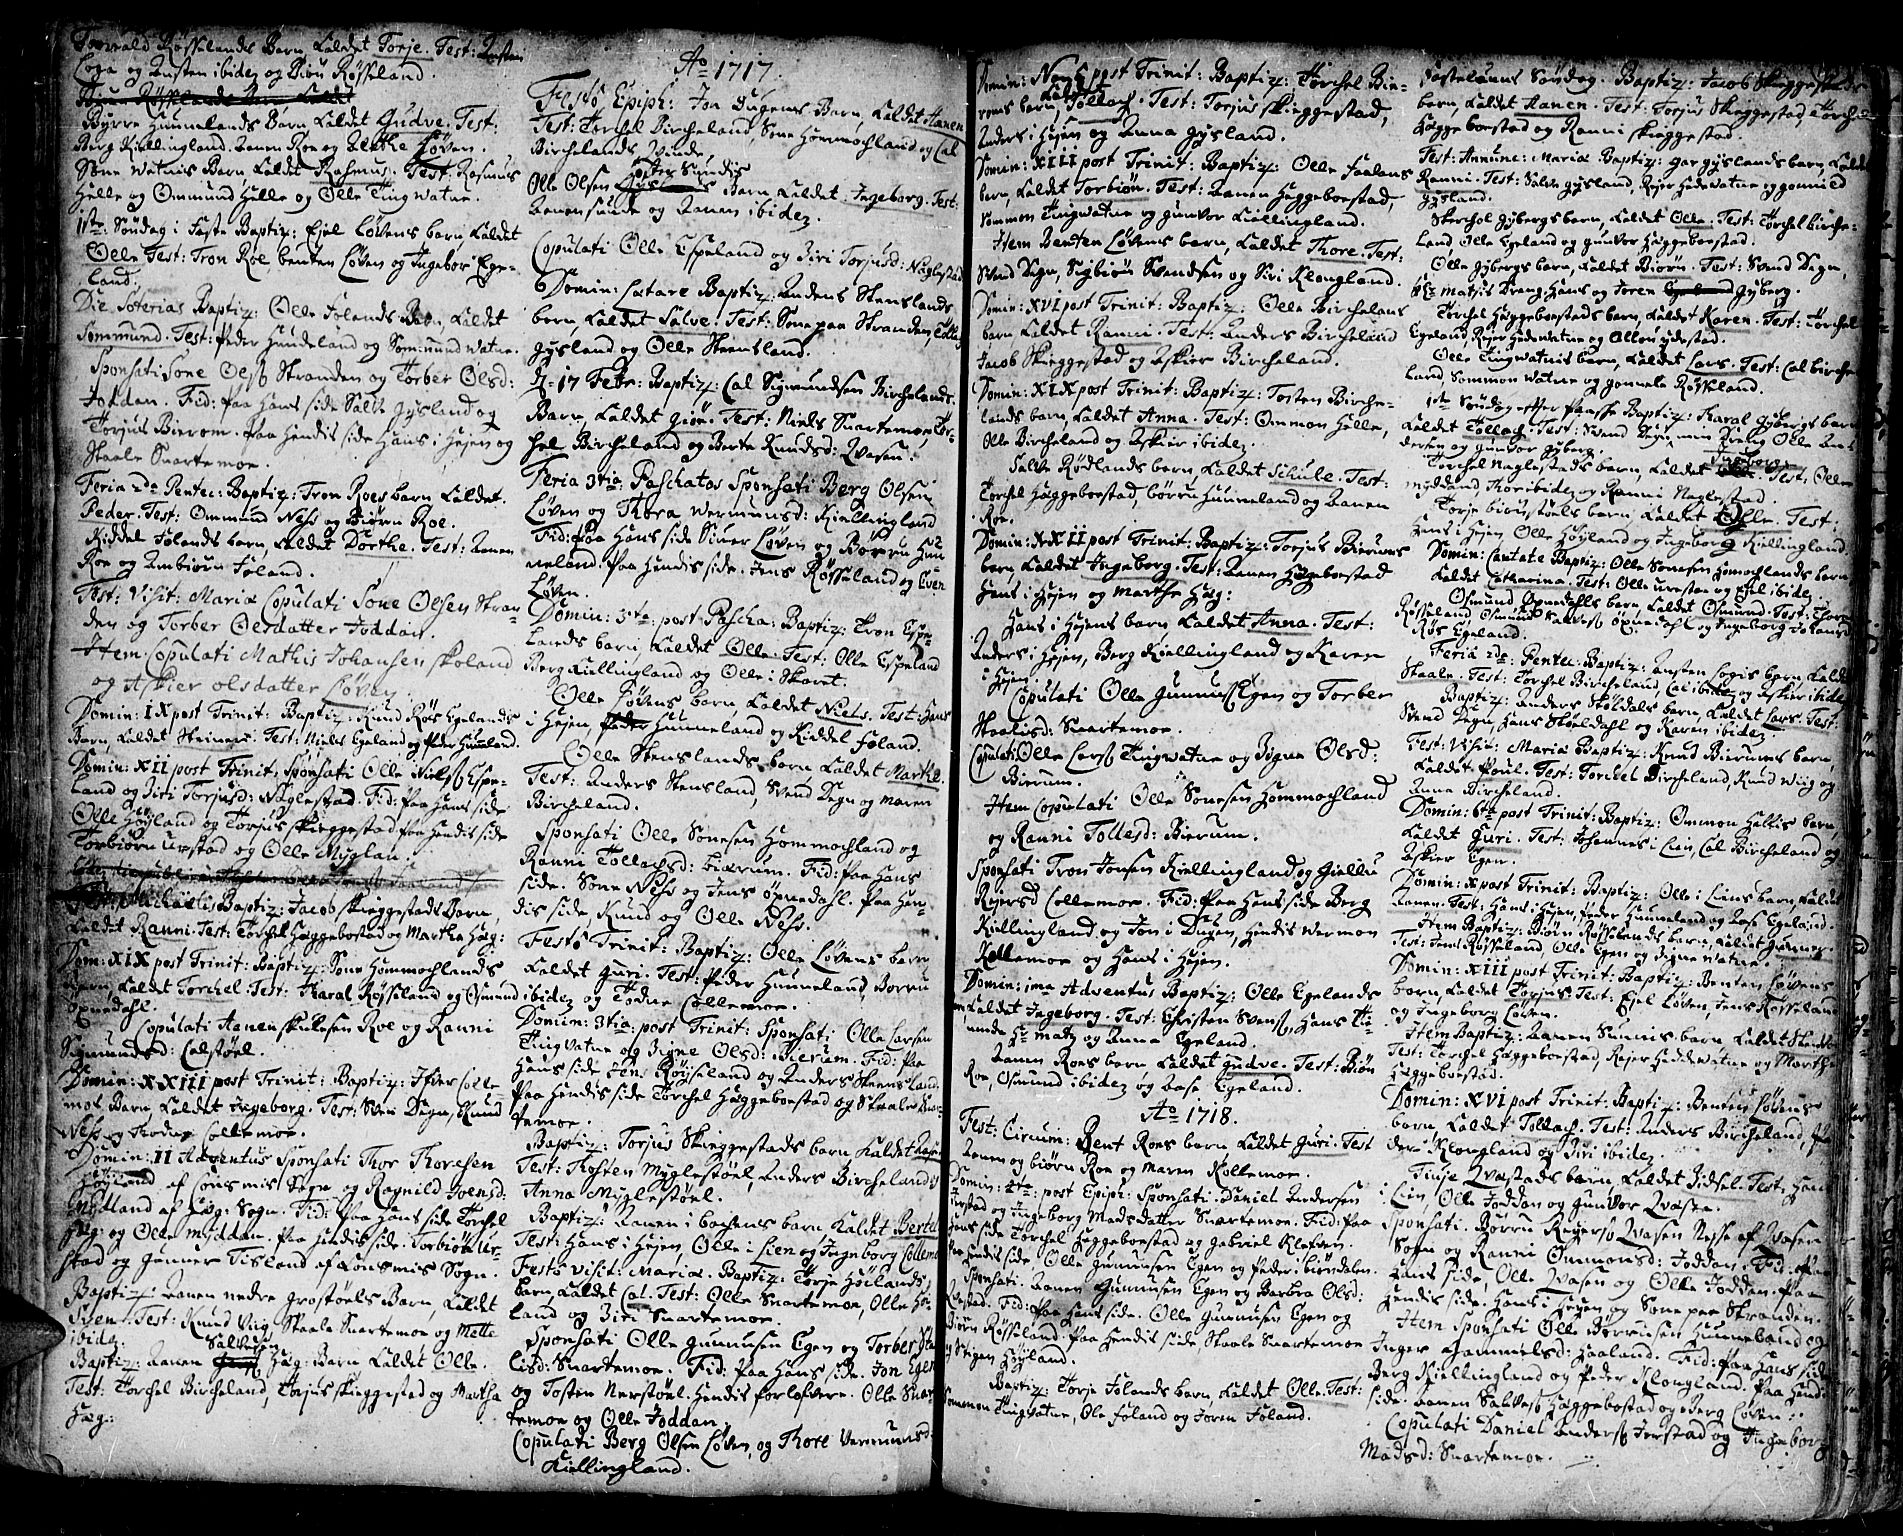 Torvald Røsselands Barn Kaldet Torje. Test: Austen
Loga og Austen ibidem og Biøn Røsseland.
Byrre Hunnelands Barn Kaldet Gudve. Test:
Berg Kiellingland. Aanen Roe og Løven.
Sone Watnis Barn Kaldet Rasmus. Test: Rasmus
Helle og Ommund Helle og Olle Tingwatne.
1ste Søndag i Faste Baptiz: Ejel Løvens barn, Kaldet
Olle Test: Tron Roe, benten Løven og Ingebor Ege-
land.
Die Soterias Baptiz: Olle Folands Barn, Kaldet
Sommund. Test: Peder Hunneland og Sommund Watne.
Sponsati Sone Olsø Stranden og Torber Olsd:
Joddan. Fid: paa Hans side Salve Gysland og
Torjus Bierom. Paa Hendis side Hans i Hejen og
Staale Snartemoe.
Feria 2da Pentec: Baptiz: Tron Roes barn Kaldet.
Peder. Test: Ommund Ness og Biørn Roe.
Kiddel Folands barn, Kaldet Dorthe. Test: Aanen
Roe og Anbiørn Foland.
Fest: Visit: Mariæ Copulati Sone Olsen Stran
den og Torber Olsdatter Joddan.
Item. Copulati Mathis Johansen skoland
og Askier olsdatter Løven.
Domin: IX post Trinit: Baptiz: Knud Røs Egelands
Barn, Kaldet Steiner. Test: Niels Egeland og Peder Hunneland.
Domin: XII post Trinit: Sponsati Olle Nielsø Espe-
land og Siri Torjusd: Naglestad. Fid: Paa Hans side
Olle Høyland og Torjus Skieggestad, paa Hendis side
Torbiørn Urstad og Olle Myglan:
Michaelis Baptiz: Jacob Skieggestads Barn,
Kaldet Ranni. Test: Torchel Haggeboestad og Martha Hæg:
Dom: XIX post Trinit: Baptiz: Sone Hommochlands
barn, Kaldet Torchel. Test: Haral Røsseland og Osmund
Opnedahl.
Copulati Aanen Skulesen Roe og Ranni
Sigmundsd: Calstøel.
Domin: XXIII post Trinit: Baptiz: Ifver Colle
moe Barn, Kaldet Ingeborg. Test: Sven Degn, Knud
Ness og Thodne Collemoe.
Domin: II Adventus Sponsati Thor Thoresen
Høyland af Consmis Sogn og Ragnild Joensd:
Mydland af Hæg: Sogn. Fid: Paa Hans side Torchel
Hæg: og Olle Myddan. Paa Hendis side: Torbiørn Ur-
stad og Gunner Tisland af Consmis Sogn.
Baptiz: Aanen nedre grostøels Barn, Kaldet
Sven. Test: Knud Viig, Staale Snartemoe og Mette
ibidem.
Baptiz: Aanen Salvesen Hæg: Barn Kaldet Olle.
Test: Torchel Bircheland, Torjus Skieggestad og Martha
Hæg:
Ao 1717.
Festo Epiph: Jon Dugens Barn, Kaldet Aanen
Test: Torchel Bircheland, Sone Hommochland og Cal
Birchelands Quinde,
Olle Olsen Sundis Barn Kaldet. Ingeborg. Test:
Aanen sunde og Aanen ibidem.
Copulati Olle Espeland og Siri Torjusd: Naglestad
Domin: Lætare Baptiz: Anders Stenslands
barn, Kaldet Salve. Test: Sone paa Stranden, Tollag
Gysland og Olle Steensland.
D. 17 Febr: Baptiz: Cal Sigmundsen Birchelands
Barn, Kaldet Giøe. Test: Niels Snartemoe, Tor-
chel Bircheland og Berte Knudsd: Qvasen.
Feria 3tia Paschatos Sponsati Berg Olsen
Løven og Thora Wermunsd: Kiellingland
Fid: Paa Hans side Siver Løven og Børru Hun
neland. Paa Hendis side. Jens Røsseland og Even
Løven.
Domin: 5ta post Pascha: Baptiz: Tron Espe-
lands barn, Kaldet Olle. Test: Olle Espeland
Berg Kiellingland og Olle i Skaret.
Olle Løvens barn, Kaldet Niels. Test: Hans
i Hejen, Peder Hunneland og Kiddel Foland.
Olle Stenslands barn Kaldet Marthe.
Test: Anders Stensland, Svend Degn og Maren
Bircheland.
Sponsati Olle Sonesen Hommochland og
Ranni Tollachsd: Bierum. Fid: Paa Hans
side. Sone Ness og Jens Opnedahl. Paa Hen-
dis side, Knud og Olle Ness.
Festo Trinit: Baptiz: Olle Løvens barn
Kaldet Guri. Test: Peder Hunneland, Borru
ibidem og Todne Collemoe.
Domin: 3tia post Trinit: Sponsati Olle Larsen
Tingvatne og Signe Olsd: Bierum. Fid: Paa
Hans side Jens Røysseland og Anders Steensland
Paa Hendis side Torchel Haggeboestad og Staale Snar
temoe.
Baptiz: Torjus Skieggestads barn Kaldet
Test: Thosten Myglestøel, Anders Bircheland og
Anna Myglestøel.
Baptiz: Aanen i bachens barn, Kaldet Bertel
Test: Hans i Hejen, Olle i Lien og Ingeborg Collemo
Festo Visit: Mariæ. Baptiz: Torje Høilands
barn, Kaldet Cal. Test: Olle Snartemoe, Olle Høi
land og Siri Snartemoe.
Sponsati Olle Gunnusen Egen og Torber Sta
lisd: Snartemoe. Fid: Paa Hans side. Jon Egen
og Tosten Nerstøel. Hendis forlofvere. Olle Snar
temoe og Olle Joddan.
Copulati Berg Olsen Løven, og Thore Vermunsd:
Kiellingland.
Domin: post Trinit: Baptiz: Torchel Bie-
roms barn, Kaldet Tollach. Test: Torjus Skieggestad,
Anders i Hejen og Anna Gysland.
Domin: XIII post Trinit: Baptiz: Olle Faalans
barn, Kaldet Torbiøn. Test: Aanen Haggeboestad,
Sommon Tingwatne og Gunvor Kiellingland.
Item Benten Løvens barn, Kaldet Thore. Test:
Svend Degn, Sigbiøn Svendsen og Siri Klongland.
Domin: XVI post Trinit: Baptiz: Olle Birchelans
barn Kaldet Ranni. Test: Anders Bircheland
Jacob Skieggestad og Askier Bircheland.
Domin: XIX post Trinit: Baptiz: Tosten Birche-
lands barn, Kaldet Anna. Test: Ommon Helle,
Olle Bircheland og Askier ibidem.
Salve Rødlands barn, Kaldet Schule. Test:
Torchel Haggeboestad, Børru Hunneland og Aanen
Roe.
Domin: XXII post Trinit: Baptiz: Torjus Bierums
barn, Kaldet Ingeborg. Test: Aanen Haggeboestad
Hans i Hejen og Marthe Hæg:
Hans i Hejens barn, Kaldet Anna. Test:
Anders i Hejen, Berg Kiellingland og Karen
i Hejen.
Copulati Olle Gunnusø Egen og Torber
Staalisd: Snartemoe.
Copulati Olle Larsø Tingwatne og Signe Olsd:
Bierum.
Item Copulati Olle Sonesen Hommochland
og Ranni Tollesd: Bierum.
Sponsati Tron Jonsen Kiellingland og Giellu
Reyersd Collemoe. Fid: Paa Hans side Berg
Kiellingland og Jon i Dugen, Hendis Wermon
Kollemoe og Hans i Hejen.
Domin: 1ma Adventus Baptiz: Olle Egelands
barn Kaldet Ingeborg. Test: Christen Svensø, Hans
Hr Matz og Anna Egeland.
Aanen Roes barn Kaldet Gudve. Test: Biøn
Roe, Osmund ibidem og Aase Egeland.
Ao 1718.
Fest: Circum: Bent Roes barn, Kaldet Guri. Test
Aanen og biørn Roe og Maren Kollemoe.
Domin: 2da post Epiph: Sponsati. Daniel Andersen
Jerstad og Ingeborg Madsdatter Snartemoe. Fid: Paa
Hans side Torchel Haggeboestad og Gabriel Kleven.
Paa Hendis side, Olle Gunnusen Egen og Peder i biørndalen.
Sponsati. Aanen Gunnusen Egen og Barbra Olsd:
Qvestad. Fid: Paa Hans side. Olle Gunnusen Egen og
Biørn Røsseland. Paa Hendis side, Staale Snartemoe
og Stigen Høyland.
Baptiz: Torje Folands barn, Kaldet Olle. Test:
Sommon Tingvatne, Ole Foland og Joren Foland.
Fastelauns Søndag. Baptiz: Jacob Skieggestads
barn, Kaldet Aanen. Test: Torjus Skieggestad, Torchel
Haggeboestad og Ranni Skieggestad.
Fest: Annunc: Mariæ Baptiz: Gar Gyslands barn, Kaldet
Ranni. Test: Salve Gysland, Rejer Hedewatne og Gonnild
Gysland.
Skerchel Gybergs barn, Kaldet Olle. Test: Torchel Birche-
land, Olle Egeland og Gunvor Haggeboestad.
Olle Gybergs barn, Kaldet Biørn. Test: Svend Degn,
Hr Matsis Dreng Hans og Joren Gyberg.
Torchel Haggeboestads barn, Kaldet Karen. Test: Torchel
Egeland, Rejer Hedewatne og Ollou ydestad.
Olle Tingwatnis barn, Kaldet Lars. Test: Cal birche
land, Sommon Watne og Gonnele Røsseland.
1ste Søndag efter Paasche Baptiz: Haral Gybergs barn
Kaldet Tollach. Test: Svend Degn, min Dreng Olle An-
dersen og Gunvor Gyberg.
Torchel Naglestads barn, Kaldet Ingeborg. Test: Olle
Myddand, Thor ibidem og Ranni Naglestad.
Torje bionstøels barn, Kaldet Olle. Test:
Hans i Hejen Olle Høyland og Ingeborg Kiellingland.
Domin: Cantate Baptiz: Olle Sonesen Homochlands barn
Kaldet Catharina. Test: Olle urestad og Ejel ibidem.
Osmund Opnedahls barn, Kaldet Osmund. Test: Thore
Røsseland Osmund Salvesø Opnedahl og Ingeborg Johansd
Røs Egeland.
Feria 2da: Pentec: Baptiz: Austen Logis barn, Kaldet
Staale. Test: Torchel Bircheland, Cal ibidem og Askier ibidem
Baptiz: Anders Skoldals barn, Kaldet Lars. Test:
Svend Degn, Hans Skoeldahl og Karen ibidem.
Fest: Visit: Mariæ Baptiz: Knud Bierumes barn,
Kaldet Poul. Test: Torchel Bircheland, Knud Wiig og
Anna Bircheland.
Domin: 6ta post Trinit: Baptiz: Ommon Hellis barn,
Kaldet Guri. Test: Johannes i Lien, Cal Bircheland og
Askier Egen.
Domin: X post Trinit: Baptiz: Olle i Liens barn, Kaldet
Aanen. Test: Hans i Hejen, Peder Hunneland og Aase Egeland.
Item Baptiz: Biørn Røsselands barn, Kaldet Gunner.
Test: Jens Røsseland, Olle Egen og Signe Watne.
Domin: XIII post Trinit: Baptiz: Benten Løvens
barn, Kaldet Torjus. Test: Ejel Løven, Jens Røsseland
og Ingeborg Løven.
Item Baptiz: Aanen Sunnis barn Kaldet
Test: Torchel Haggeboestad, Rejer Hiddewatne og Marthe
Haggeboestad.
Domin: XVI post Trinit: Baptiz: Benten Løvens
barn, Kaldet Tollach. Test: Anders Bircheland, Pe
der Klongland og Siri ibidem.
Tiuje Qvastads barn, Kaldet Sidsel. Test, Hans
i Lien, Olle Joddan og Gunvor Qvasen.
Sponsati. Børru Reyersø Qvasen af Qvasen
Sogn og Ranni Ommonsd: Joddan. Fid. Paa
Hans side, Olle Qvasen og Olle Joddan. Paa
Hendis side. Hans i Hejen og Sone paa Stranden.
Item Sponsati Olle Børrusen Hunneland og
Inger Gammelsd: Haaland. Fid: Paa Hans side
Berg Kiellingland og Peder Klongland. Paa Hendis
side. Aanen Salvesø Haggeboestad og Berg Løven:
Copulati Daniel Andersø Jerstad og Ingeborg
Madsd: Snartemoe.